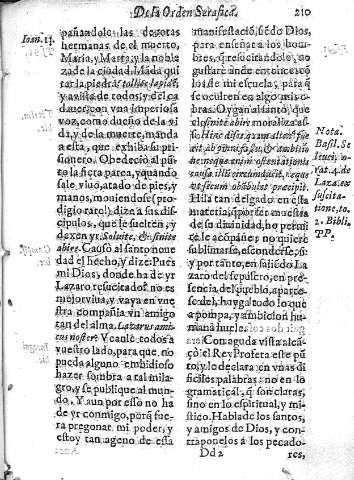 De la Orden Serafica.
210
Ioan. 11.
pañandole las deuotas
hermanas de el muerto,
Maria, y Marta, y la noble
za de la ciudad. Māda qui
tar la piedra: tollite lapidē,
y a vista de todos, y del ca
dauer con vna imperiosa
voz, como dueño de la vi
da, y de la muerte, manda
a esta, que exhiba su pri-
sionero. Obedeciò al pū
to la seca parca, y quando
sale viuo, atado de pies, y
manos, moniendose (pro
digio raro!) dize a sus di-
scipulos, que le suelten, y
dexen yr. Soluite, & sinite
abire. Causò al santo noue
dad el hecho, y dize: Pues
mi Dios, donde ha de yr
Lazaro resucitado? no es
mejor viua, y vaya en vue
stra compañia vn amigo
tan del alma. Lazarus ami
cus noster? Veanle todos a
vuestro lado, para que no
pueda alguno embidioso
hazer sombra a tal mila-
gro, y se publique al mun-
do. Y aun por esso no ha
de yr conmigo, porq̄ fue-
ra pregonar mi poder, y
estoy tan ageno de esta
manifestaciò, siēdo Dios,
para enseñar a los hom-
bres, q̄ resucitado, no le
gustarè ande entonces cō
los de mi escuela, para q̄
se oculten en algo mis o-
bras. Oygan al santo, que
el sinite abire moraliza as-
so. Hinc disce quam alien fue-
rit ab omni fastu, & ambitio
ne
neque enim ostentationis
causa illū circunduxit, neque
vt secum obābulet præcipit.
Hila tan delgado en esta
materia, q̄ por ser muestra
de su diuinidad, no permi
te le acōpañe; no quiere
sublimarse, esconderse, si:
y por tanto, en saliēdo La
zaro del sepulcro, en pre-
sencia del pueblo, aparte-
se del, huyga todo lo que
a pompa, y ambicion hu-
mana huele.
Con aguda vista alcā-
çò el Rey Profeta este pū
to, y lo declara en vnas di
ficiles palabras: no en lo
gramatical, q̄ son claras,
sino en lo espiritual, y mi-
stico. Habla de los santos,
y amigos de Dios, y con-
traponelos a los pecado-
Nota.
Basil. Se
suscita-
tione, to.
2. Bibli.
PP.
Dd 2
res,